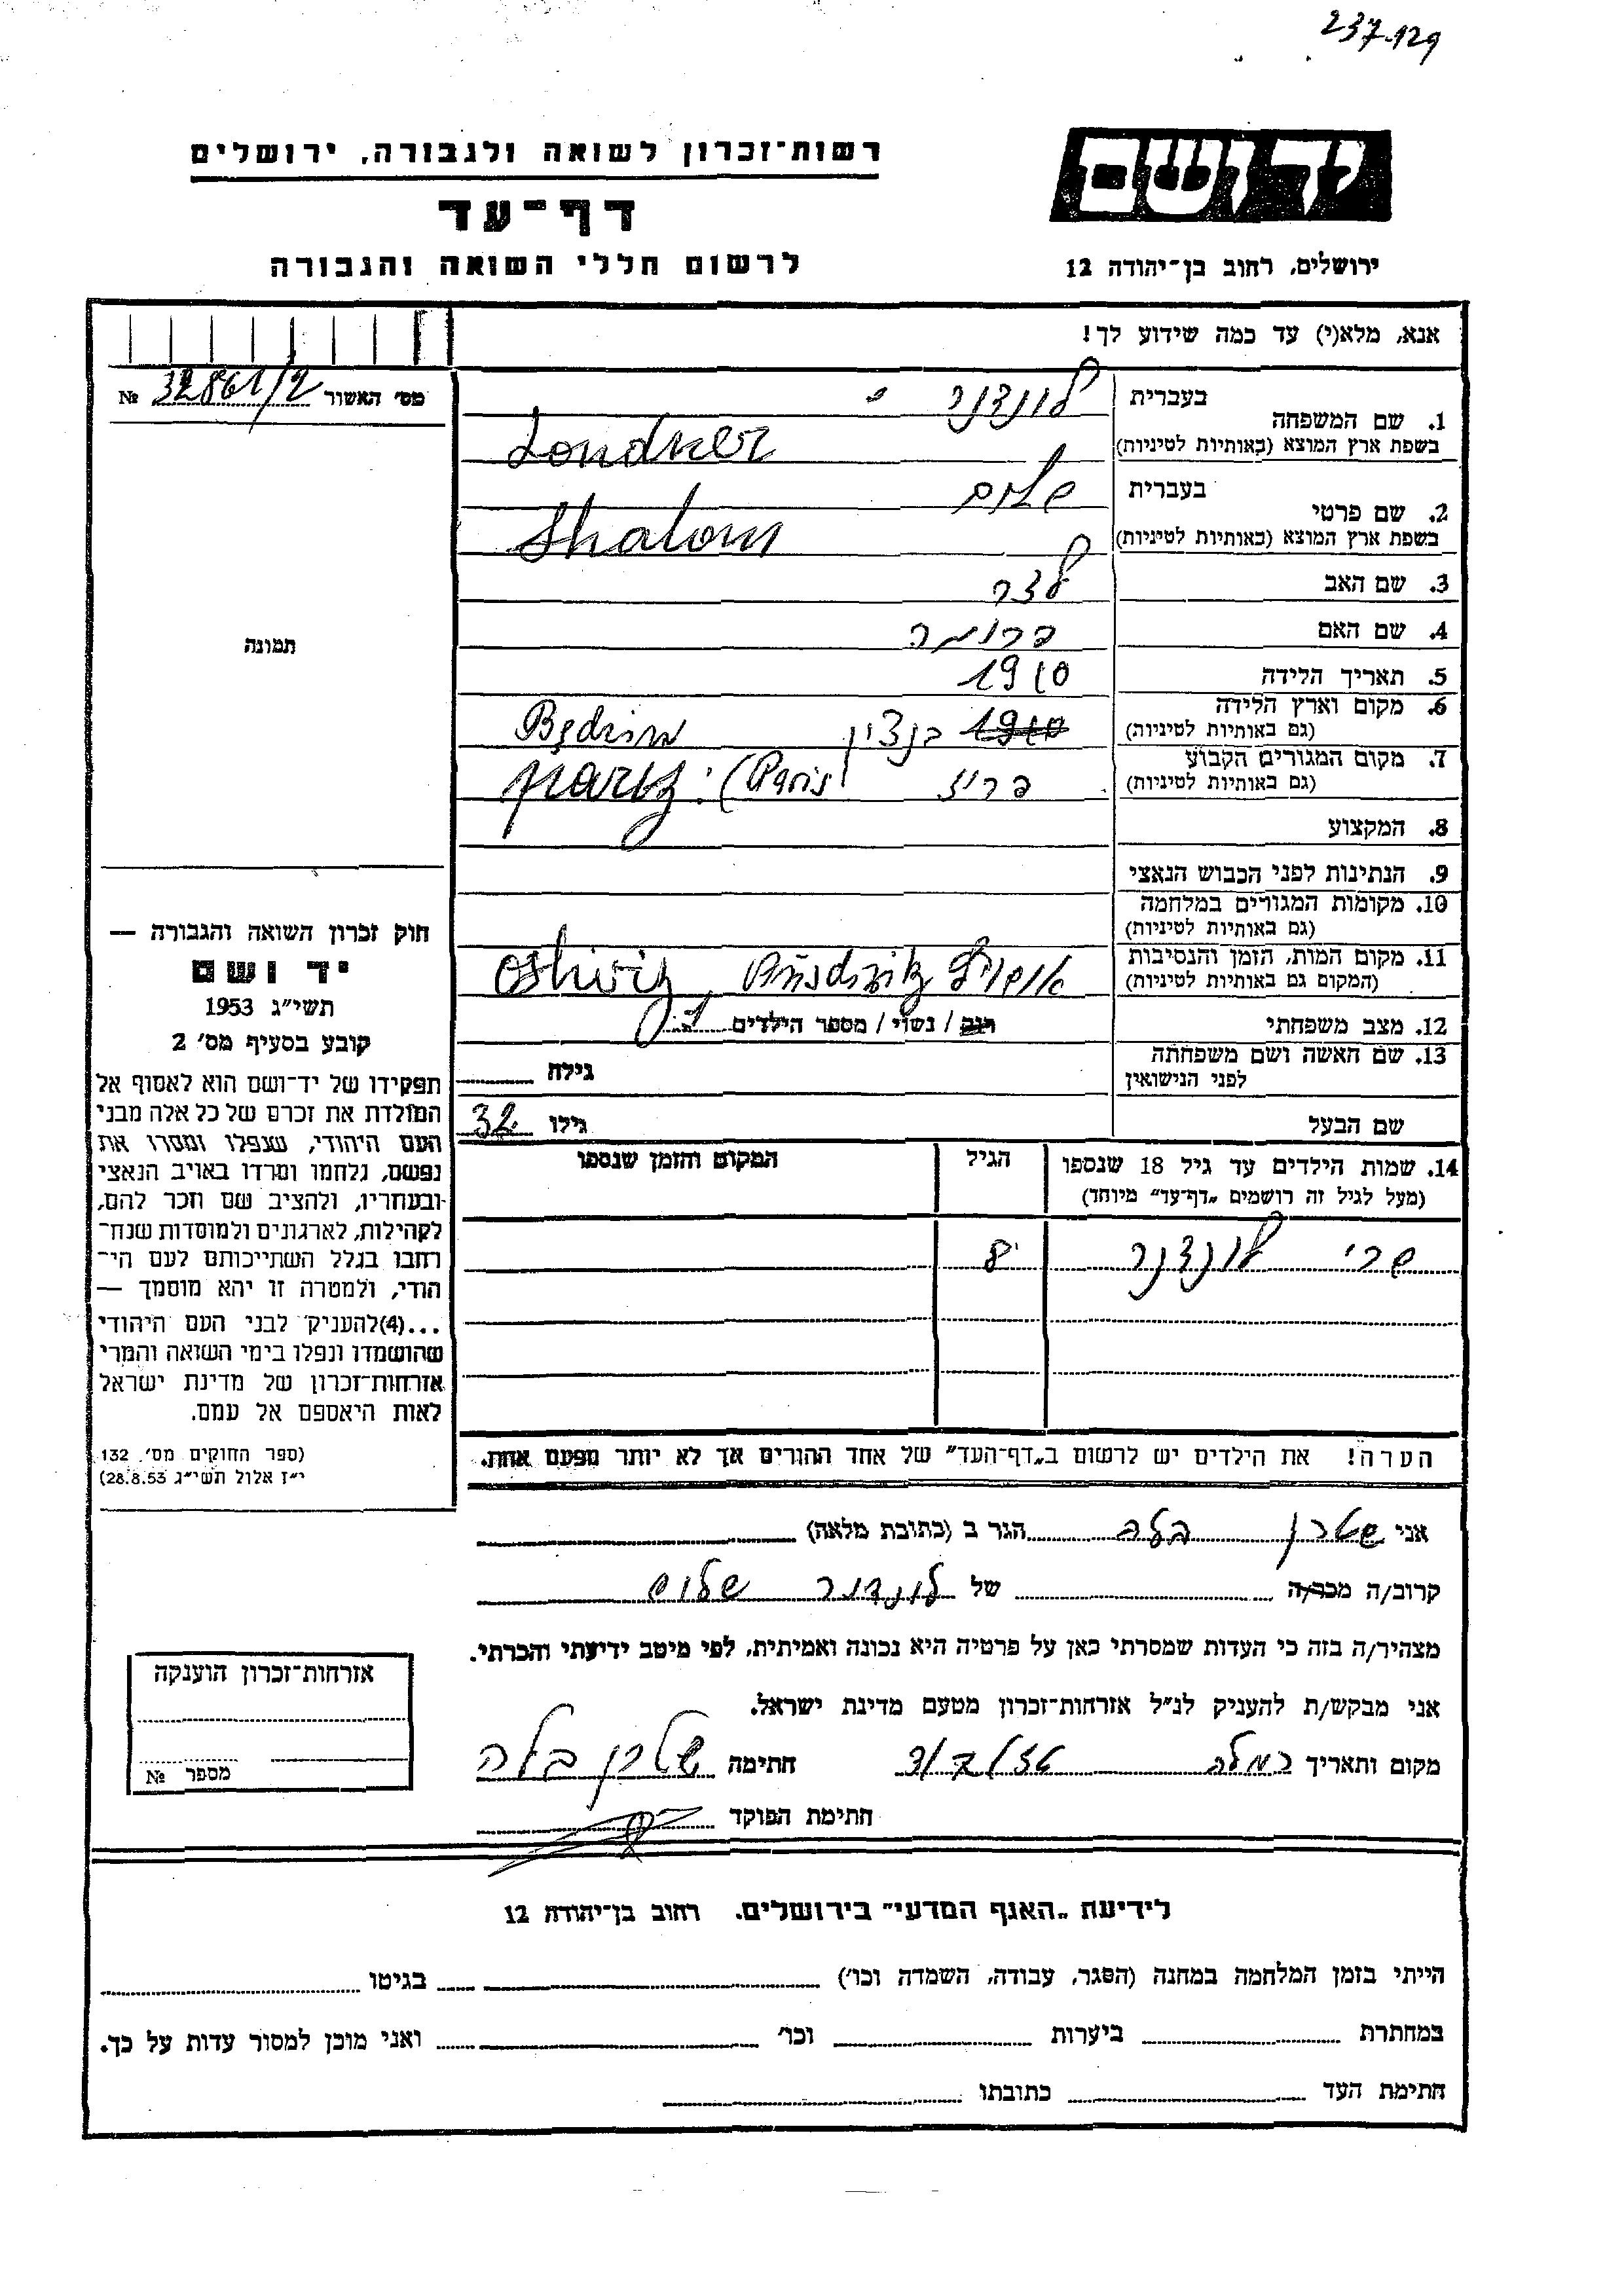 237-129
יד ושם
רשות־זכרון לשואה ולגבורה, ירושלים
דף־עד
לרשום חללי השואה והגבורה
ירושלים, רחוב בן־יהודה 12
אנא, מלא(י) עד כמה שידוע לך!
מס' האשור № 32861/2
תמונה
1. שם המשפחה
בעברית לונדנר
בשפת ארץ המוצא (באותיות לטיניות) Londner
2. שם פרטי
בעברית שלום
בשפת ארץ המוצא (באותיות לטיניות) Shalom
3. שם האב לצר
4. שם האם ברומה
5. תאריך הלידה 1910
6. מקום וארץ הלידה 1910 בנדין
(גם באותיות לטיניות)
7. מקום המגורים הקבוע פריז (Paris
(גם באותיות לטיניות)
8. המקצוע
9. הנתינות לפני הכבוש הנאצי
10. מקומות המגורים במלחמה
(גם באותיות לטיניות)
11. מקום המות, הזמן והנסיבות Oshwitz
(המקום גם באותיות לטיניות)
12. מצב משפחתי רוק / נשוי / מספר הילדים 1
13. שם האשה ושם משפחתה
לפני הנישואין גילה
שם הבעל גילו 32
14. שמות הילדים עד גיל 18 שנספו הגיל המקום והזמן שנספו
(מעל לגיל זה רושמים „דף־עד" מיוחד)
שרי לונדנר 8
הערה! את הילדים יש לרשום ב„דף־העד" של אחד ההורים אך לא יותר מפעם אחת.
חוק זכרון השואה והגבורה —
יד ושם
תשי"ג 1953
קובע בסעיף מס' 2
תפקידו של יד־ושם הוא לאסוף אל
המולדת את זכרם של כל אלה מבני
העם היהודי, שנפלו ומסרו את
נפשם, נלחמו ומרדו באויב הנאצי
ובעוזריו, ולהציב שם וזכר להם,
לקהילות, לארגונים ולמוסדות שנח־
רבו בגלל השתייכותם לעם הי־
הודי, ולמטרה זו יהא מוסמך —
...(4)להעניק לבני העם היהודי
שהושמדו ונפלו בימי השואה והמרי
אזרחות־זכרון של מדינת ישראל
לאות היאספם אל עמם.
(ספר החוקים מס'. 132
י"ז אלול תשי"ג 28.8.53)
אני שטרן בלה הגר ב (כתובת מלאה)
קרוב/ה מכר/ה של לונדנר שלום
מצהיר/ה בזה כי העדות שמסרתי כאן על פרטיה היא נכונה ואמיתית, לפי מיטב ידיעתי והכרתי.
אני מבקש/ת להעניק לנ"ל אזרחות־זכרון מטעם מדינת ישראל.
מקום ותאריך רמלה חתימה שטרן בלה
חתימת הפוקד
אזרחות־זכרון הוענקה
מספר №
לידיעת „האגף המדעי" בירושלים. רחוב בן־יהודה 12
הייתי בזמן המלחמה במחנה (הסגר, עבודה, השמדה וכו') בגיטו
במחתרת ביערות וכו' ואני מוכן למסור עדות על כך.
חתימת העד כתובתו